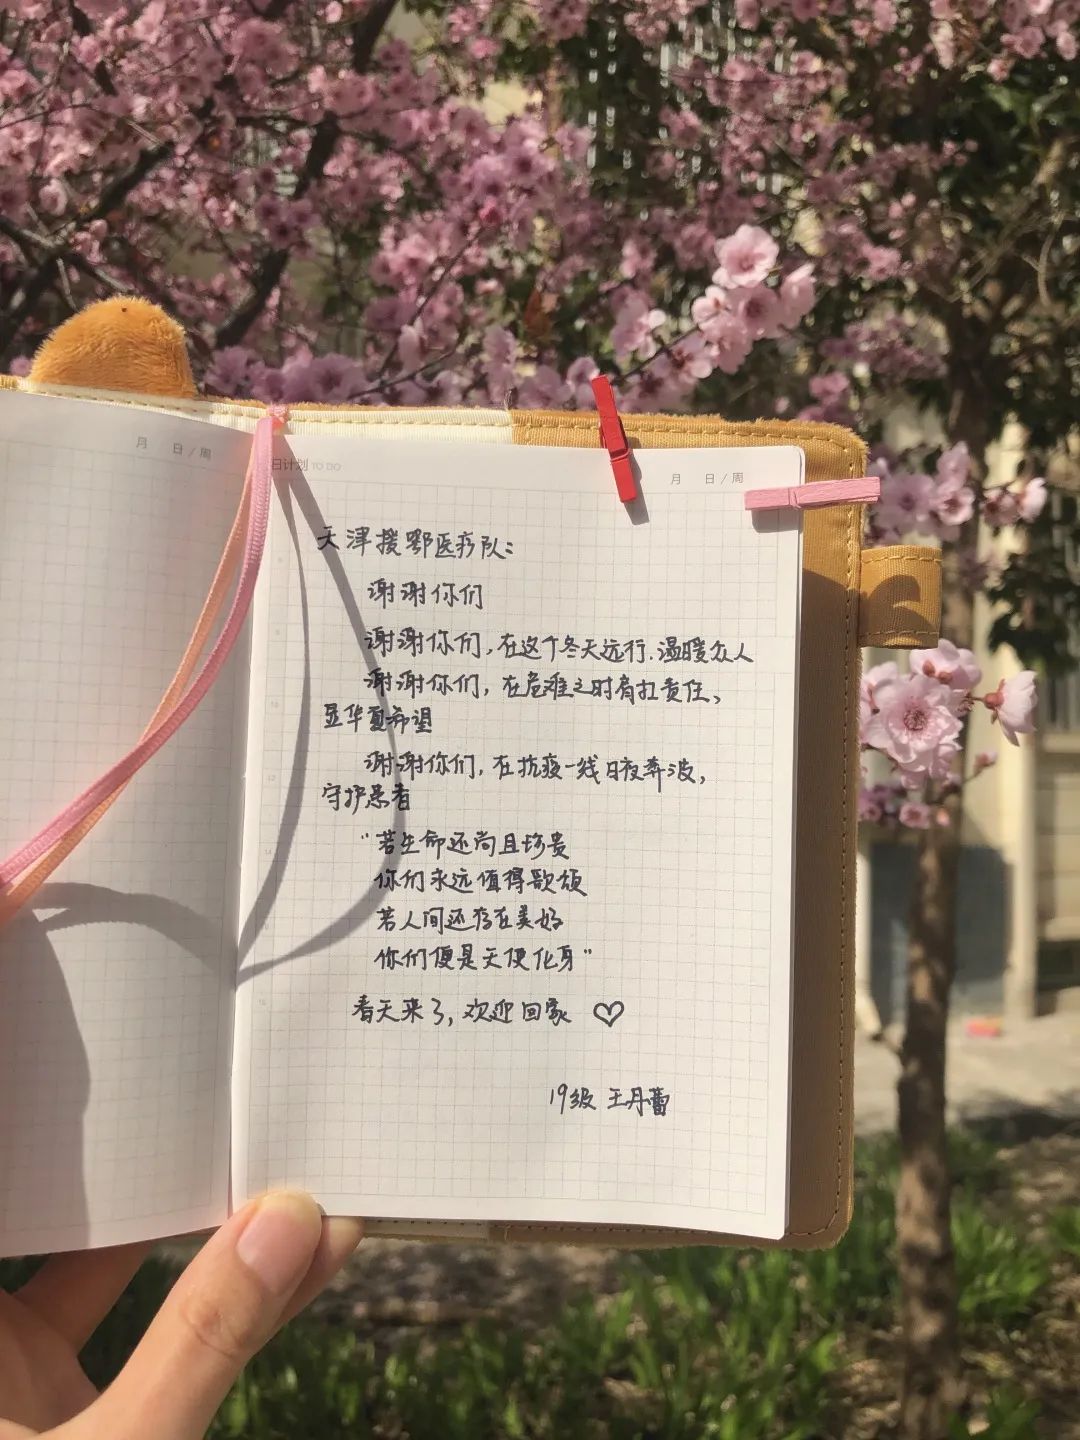 月 日/周
日计划 TO DO
月 日/周
天津援鄂医疗队：
谢谢你们
谢谢你们，在这个冬天远行.温暖众人
谢谢你们，在危难之时肩扛责任、
显华夏希望
谢谢你们，在抗疫一线日夜奔波，
守护患者
“若生命还尚且珍贵
你们永远值得歌颂
若人间还存在美好
你们便是天使化身”
春天来了，欢迎回家 ♡
19级 王丹蕾